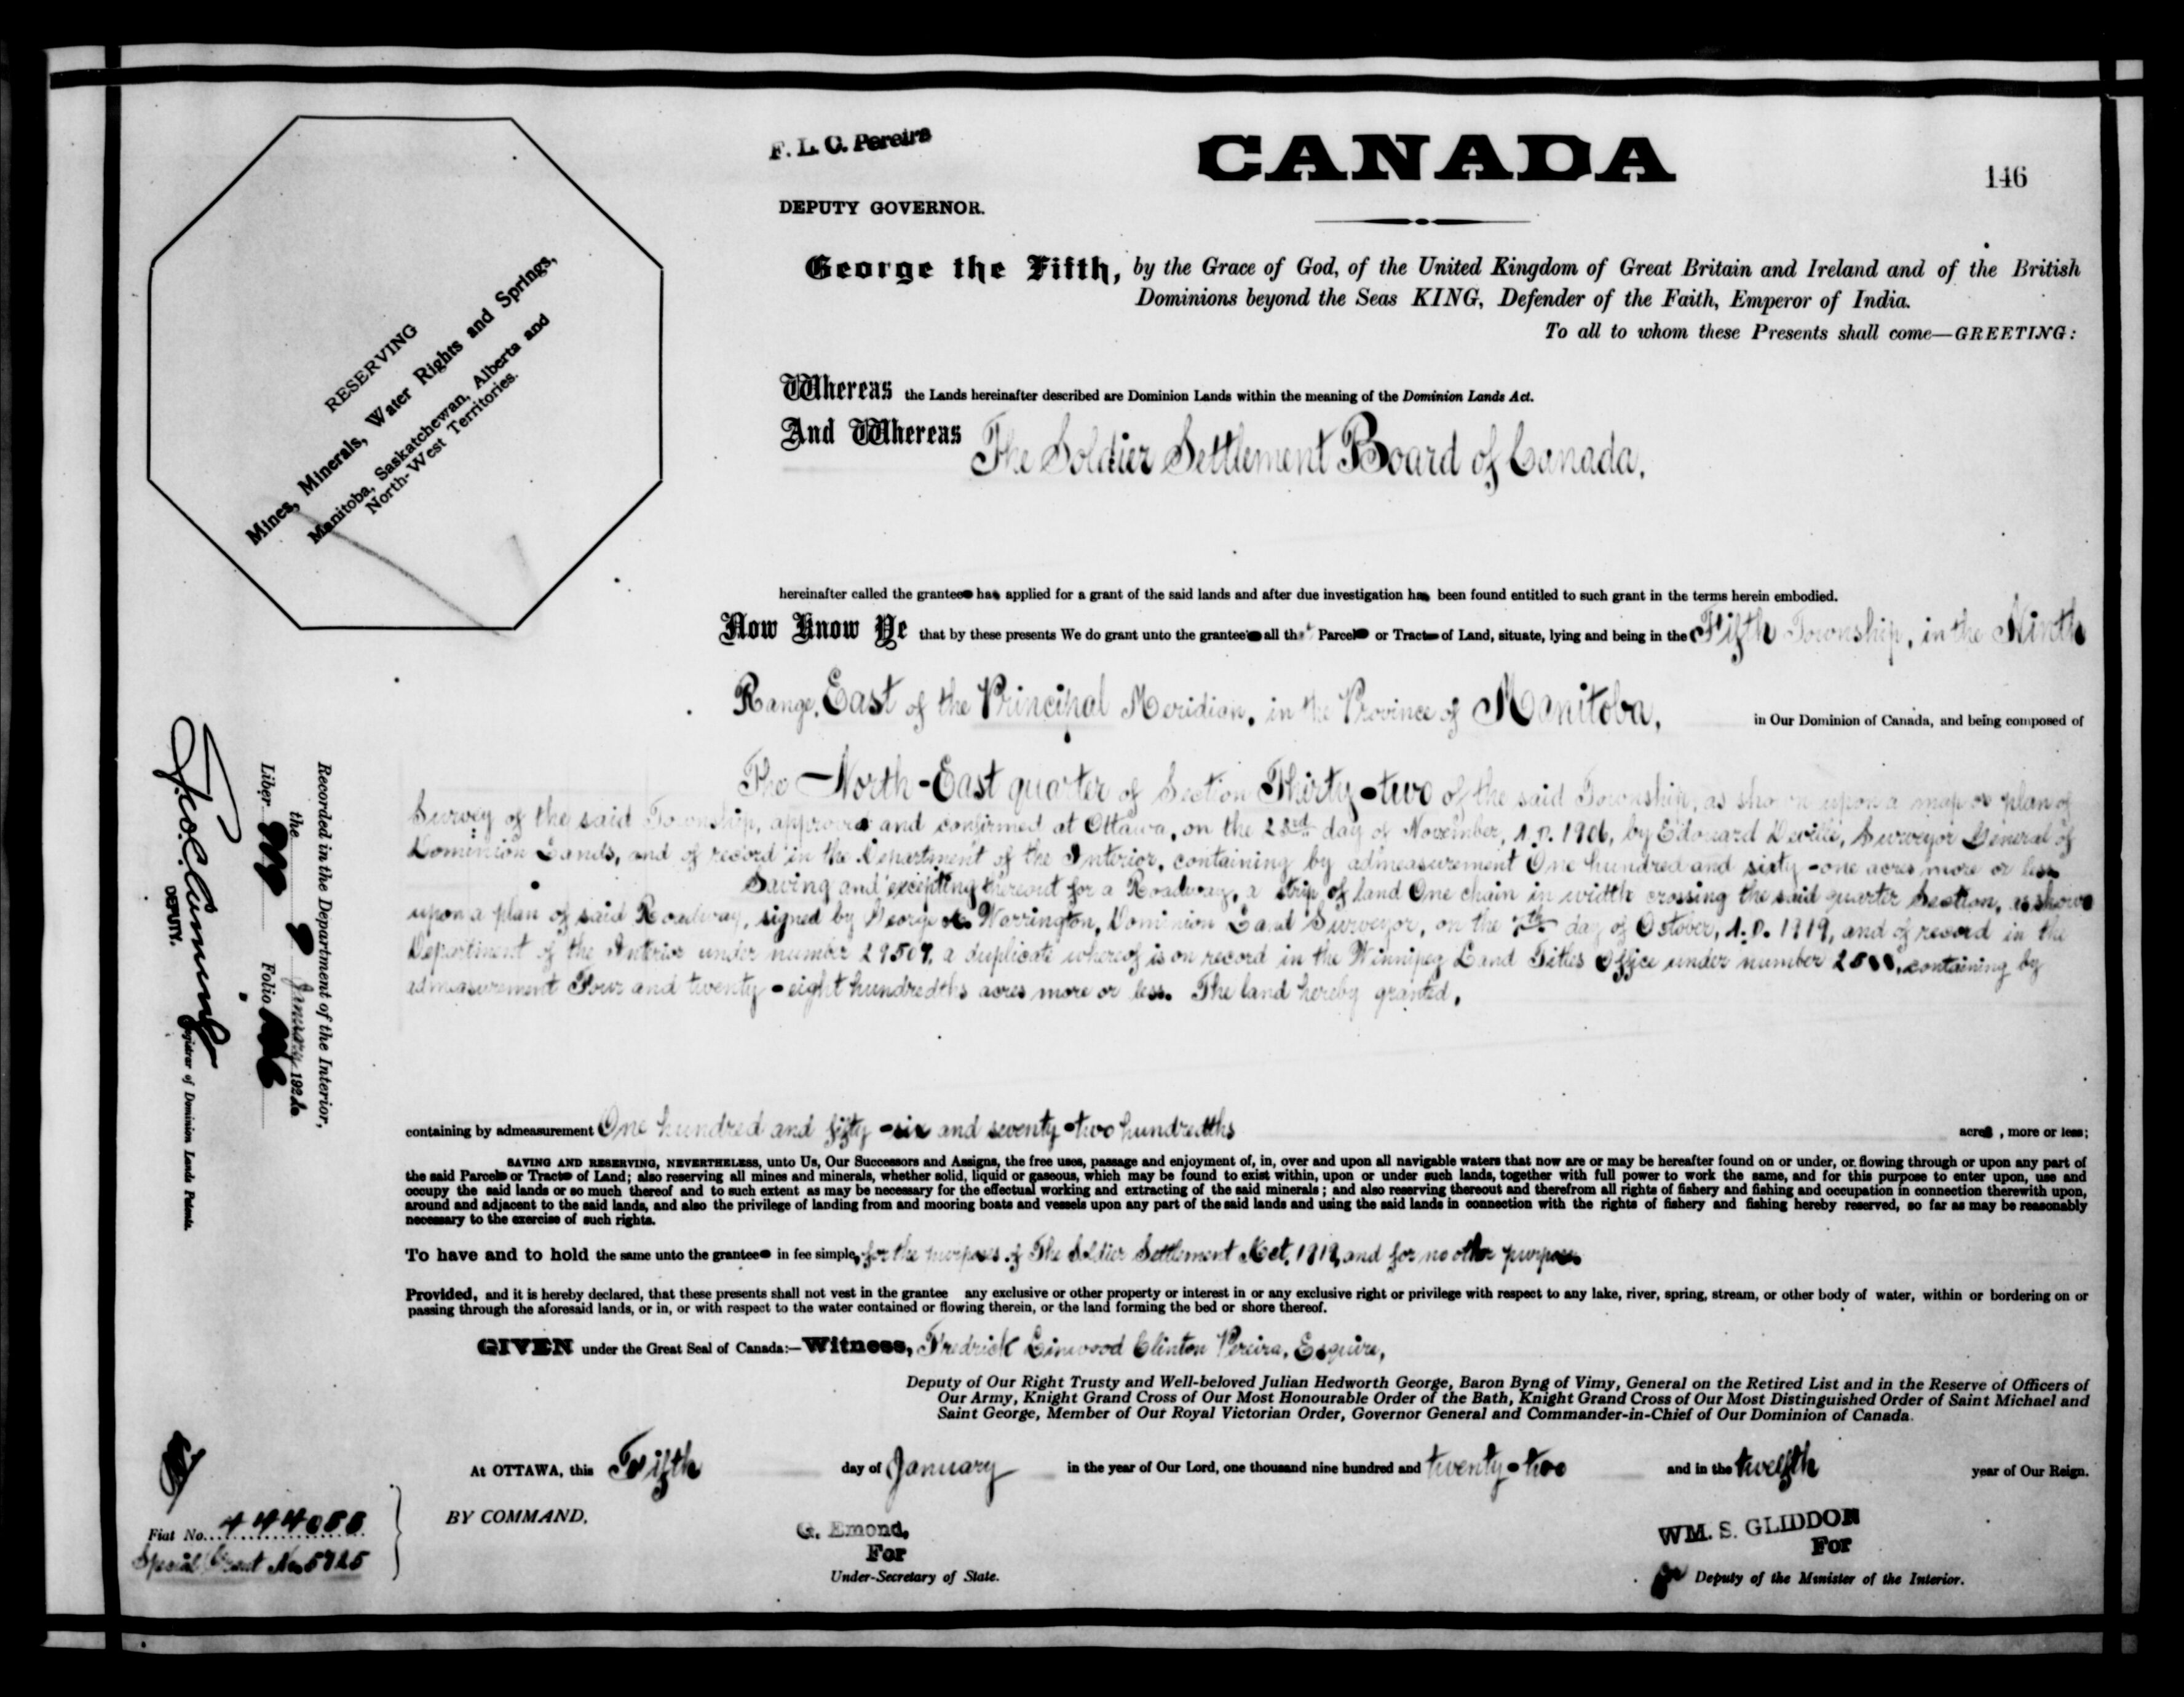 F. L. C. Pereira
CANADA
146
DEPUTY GOVERNOR.
RESERVING
Mines, Minerals, Water Rights and Springs,
Manitoba, Saskatchewan, Alberta and
North-West Territories.
George the Fifth, by the Grace of God, of the United Kingdom of Great Britain and Ireland and of the British
Dominions beyond the Seas KING, Defender of the Faith, Emperor of India.
To all to whom these Presents shall come—GREETING:
Whereas the Lands hereinafter described are Dominion Lands within the meaning of the Dominion Lands Act.
And Whereas The Soldier Settlement Board of Canada,
hereinafter called the grantee has applied for a grant of the said lands and after due investigation has been found entitled to such grant in the terms herein embodied.
Now Know Ye that by these presents We do grant unto the grantee all that Parcel or Tract of Land, situate, lying and being in the Fifth Township, in the Ninth
Range, East of the Principal Meridian, in the Province of Manitoba, in Our Dominion of Canada, and being composed of
The North-East quarter of Section Thirty-two of the said Township, as shown upon a map or plan of
Survey of the said Township, approved and confirmed at Ottawa, on the 23rd day of November, A.D. 1906, by Edouard Deville, Surveyor General of
Dominion Lands, and of record in the Department of the Interior, containing by admeasurement One hundred and sixty-one acres more or less
Saving and excepting thereout for a Roadway, a strip of land One chain in width crossing the said quarter Section, as shown
upon a plan of said Roadway, signed by George Warrington, Dominion Land Surveyor, on the day of October, A.D. 1919, and of record in the
Department of the Interior under number 29507, a duplicate whereof is on record in the Winnipeg Land Titles Office under number containing by
admeasurement Four and twenty-eight hundredths acres more or less. The land hereby granted,
containing by admeasurement One hundred and fifty-six and seventy-two hundredths acres, more or less;
SAVING AND RESERVING, NEVERTHELESS, unto Us, Our Successors and Assigns, the free uses, passage and enjoyment of, in, over and upon all navigable waters that now are or may be hereafter found on or under, or flowing through or upon any part of
the said Parcel or Tract of Land; also reserving all mines and minerals, whether solid, liquid or gaseous, which may be found to exist within, upon or under such lands, together with full power to work the same, and for this purpose to enter upon, use and
occupy the said lands or so much thereof and to such extent as may be necessary for the effectual working and extracting of the said minerals; and also reserving thereout and therefrom all rights of fishery and fishing and occupation in connection therewith upon,
around and adjacent to the said lands, and also the privilege of landing from and mooring boats and vessels upon any part of the said lands and using the said lands in connection with the rights of fishery and fishing hereby reserved, so far as may be reasonably
necessary to the exercise of such rights.
To have and to hold the same unto the grantee in fee simple, for the purposes of The Soldier Settlement Act, 1919, and for no other purpose.
Provided, and it is hereby declared, that these presents shall not vest in the grantee any exclusive or other property or interest in or any exclusive right or privilege with respect to any lake, river, spring, stream, or other body of water, within or bordering on or
passing through the aforesaid lands, or in, or with respect to the water contained or flowing therein, or the land forming the bed or shore thereof.
GIVEN under the Great Seal of Canada:—Witness, Fredrick Linwood Clinton Pereira, Esquire,
Deputy of Our Right Trusty and Well-beloved Julian Hedworth George, Baron Byng of Vimy, General on the Retired List and in the Reserve of Officers of
Our Army, Knight Grand Cross of Our Most Honourable Order of the Bath, Knight Grand Cross of Our Most Distinguished Order of Saint Michael and
Saint George, Member of Our Royal Victorian Order, Governor General and Commander-in-Chief of Our Dominion of Canada.
At OTTAWA, this Fifth day of January in the year of Our Lord, one thousand nine hundred and twenty-two and in the twelfth year of Our Reign.
BY COMMAND,
G. Emond,
For
Under-Secretary of State.
WM. S. GLIDDON
For
Deputy of the Minister of the Interior.
Recorded in the Department of the Interior,
the January 192
Liber Folio
DEPUTY. Registrar of Dominion Lands Patents.
Fiat No.
Special Grant No. 5725